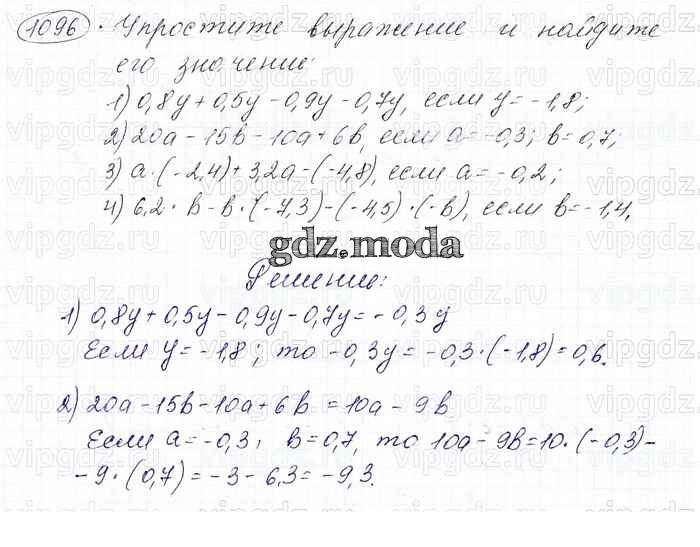 1096. Упростите выражение и найдите
его значение:
1) 0,8y + 0,5y - 0,9y - 0,7y, если y = -1,8;
2) 20a - 15b - 10a + 6b, если a = -0,3; b = 0,7;
3) a · (-2,4) + 3,2a - (-4,8), если a = -0,2;
4) 6,2 · b - b · (-7,3) - (-4,5) · (-b), если b = -1,4.
gdz.moda
Решение:
1) 0,8y + 0,5y - 0,9y - 0,7y = -0,3y
Если y = -1,8; то -0,3y = -0,3 · (-1,8) = 0,6.
2) 20a - 15b - 10a + 6b = 10a - 9b
Если a = -0,3, b = 0,7, то 10a - 9b = 10 · (-0,3) -
- 9 · (0,7) = -3 - 6,3 = -9,3.